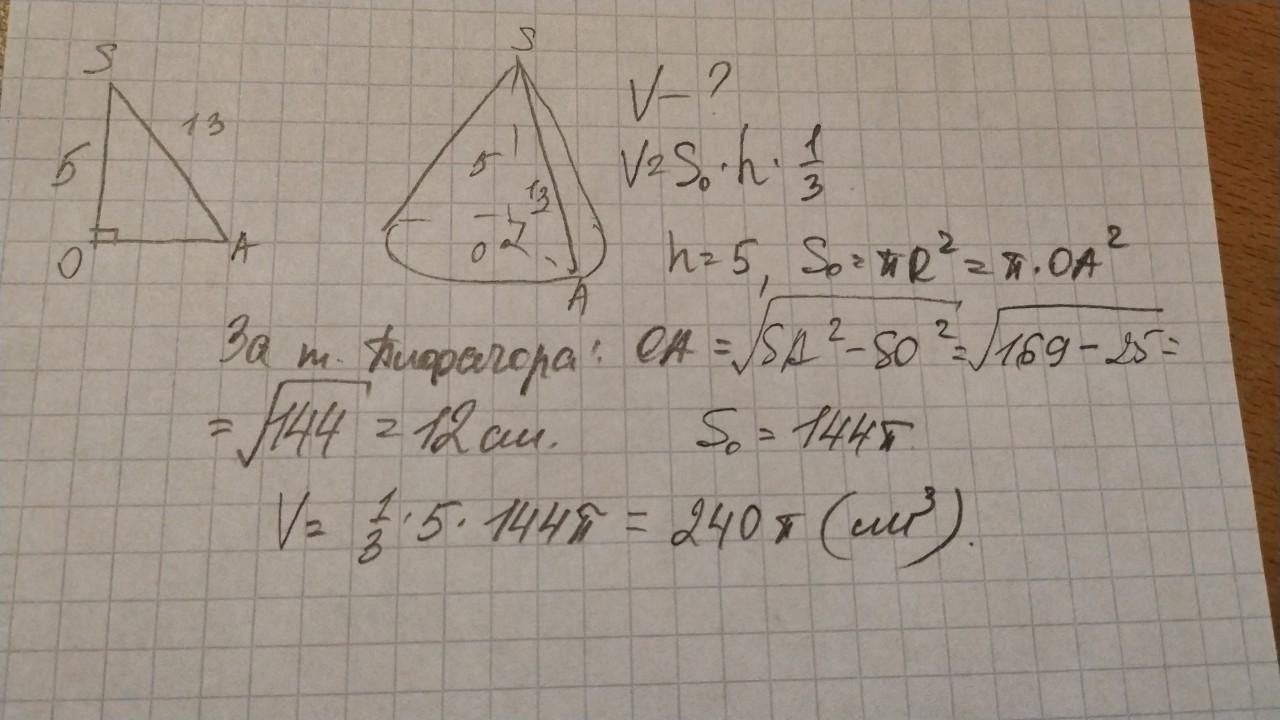 S
13
5
O
A
S
5
13
O
A
V – ?
V = S₀ · h · 1/3
h = 5, S₀ = πR² = π · OA²
За т. Піфагора: OA = √(SA² – SO²) = √(169 – 25) =
= √144 = 12 см. S₀ = 144π
V = 1/3 · 5 · 144π = 240π (см³).